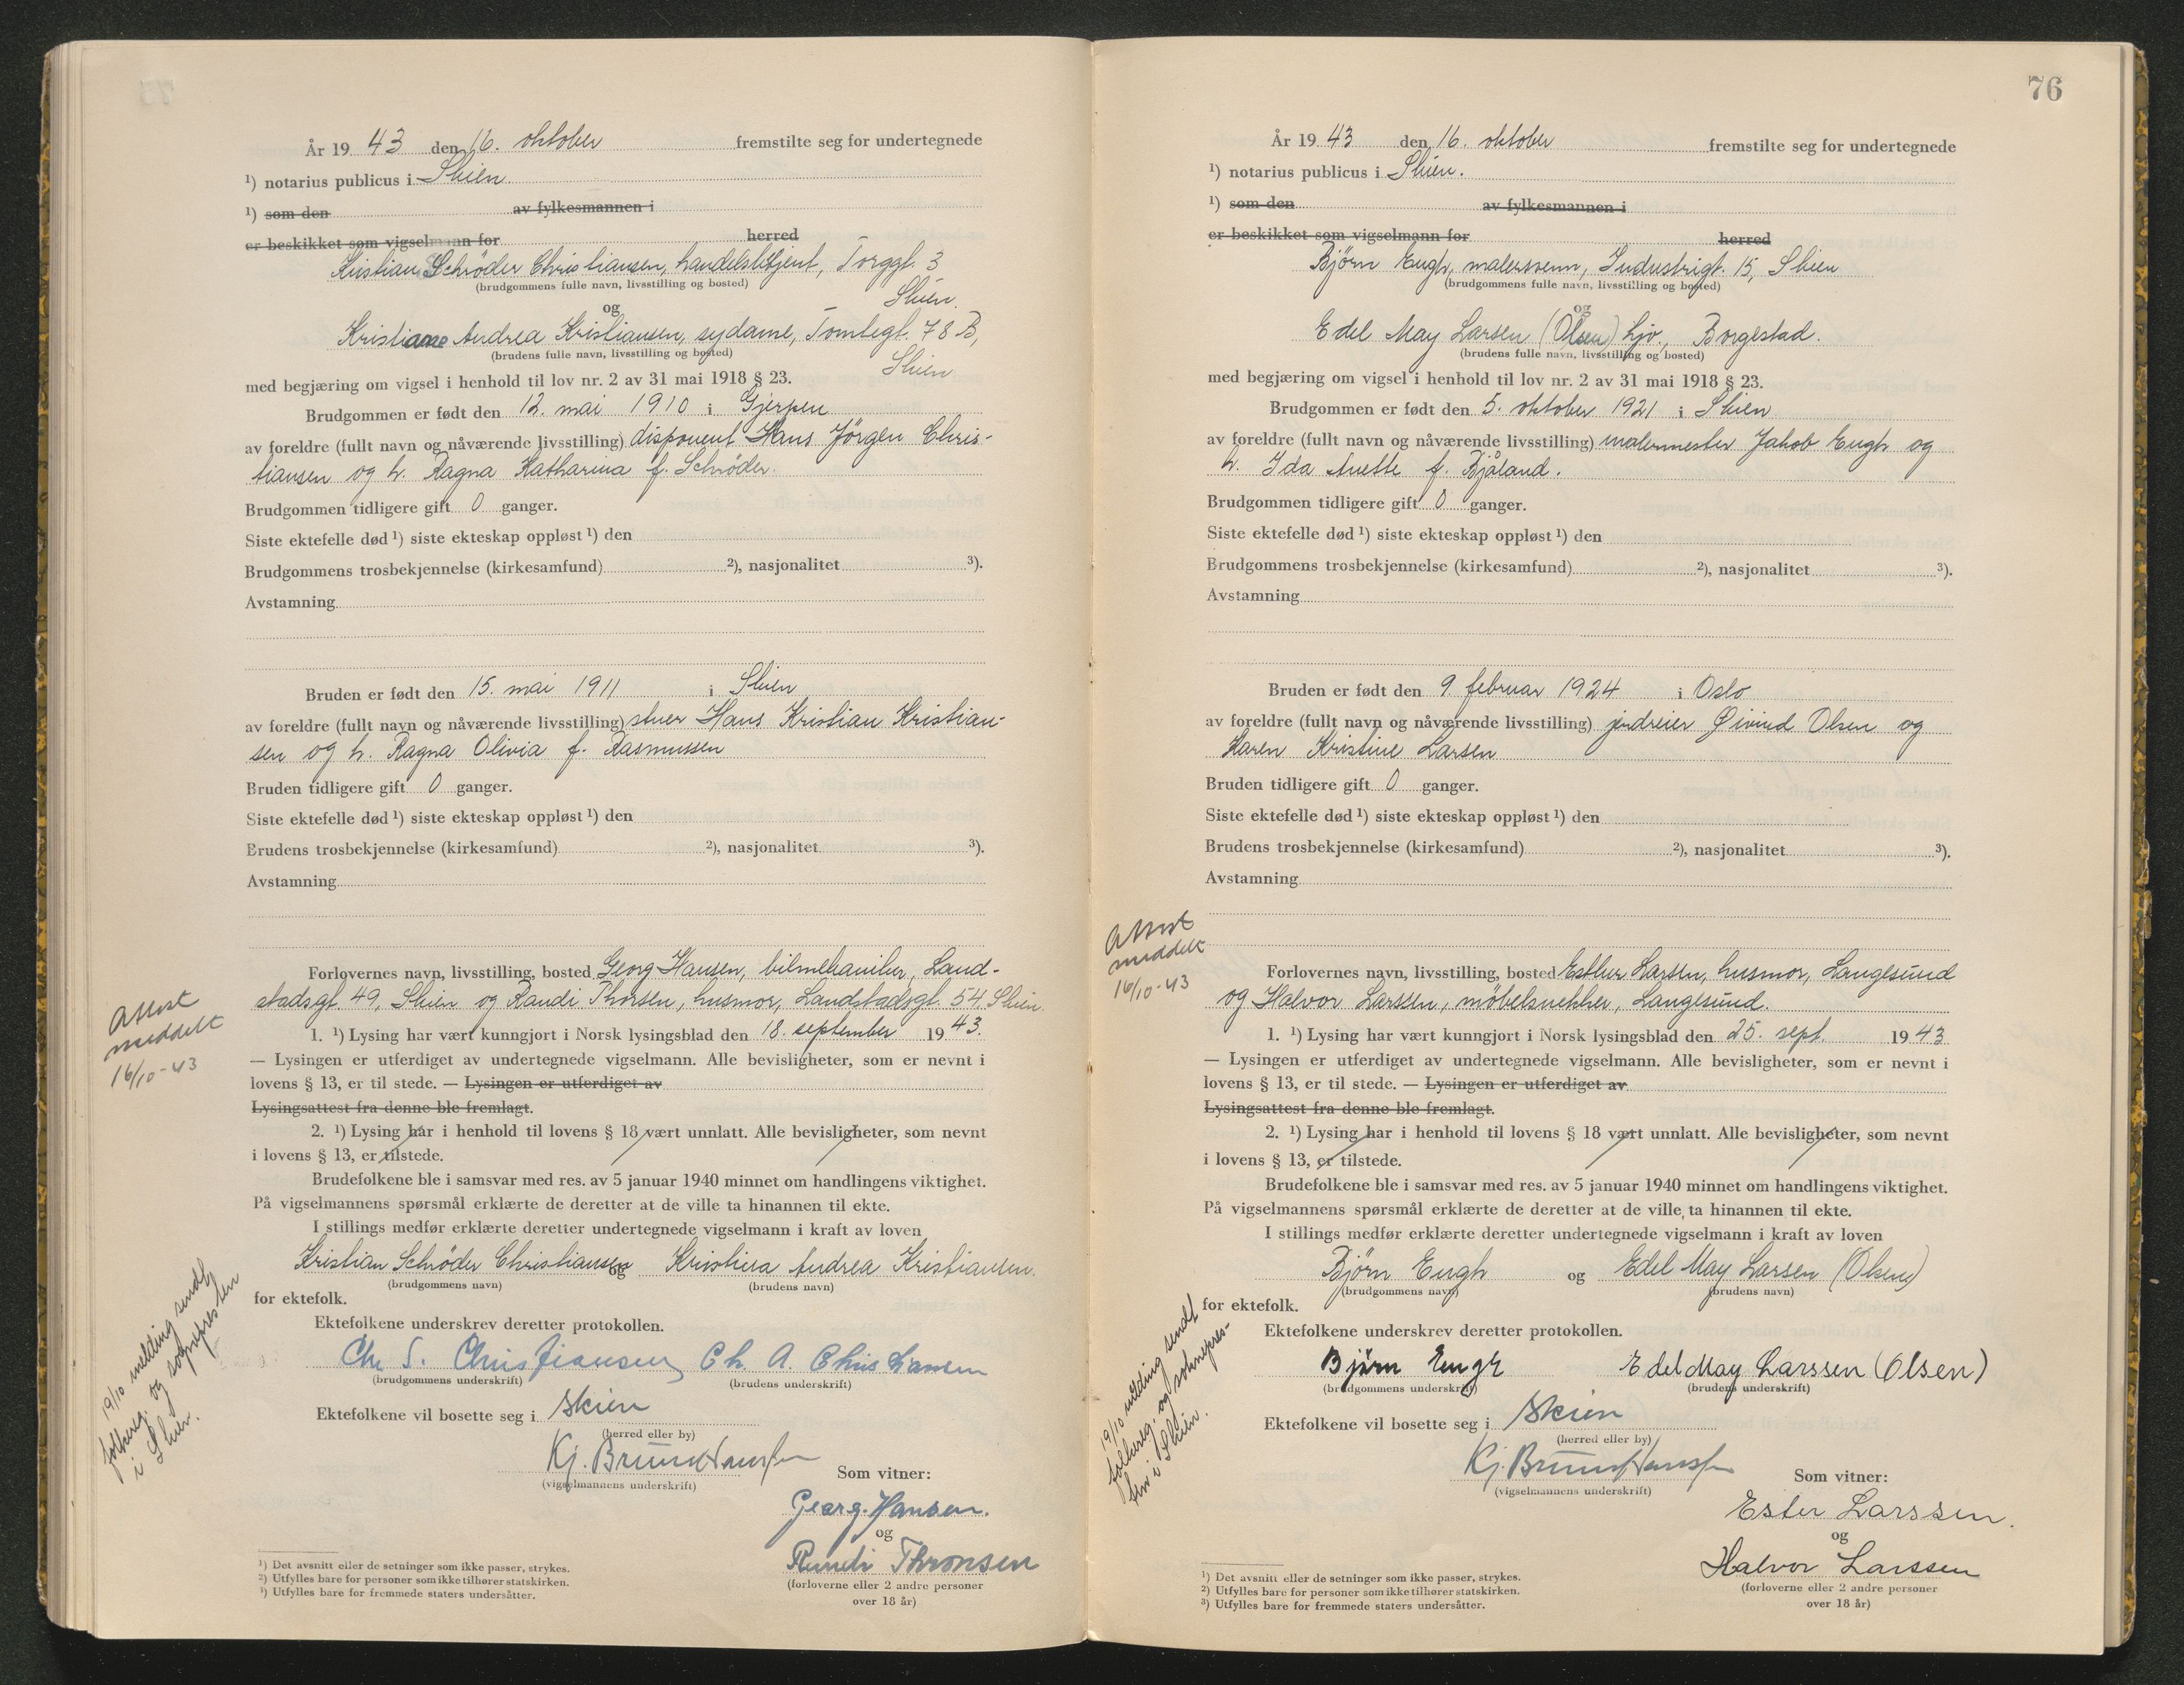 År 1943 den 16. oktober fremstilte seg for undertegnede
¹) notarius publicus i Skien.
¹) som den av fylkesmannen i
er beskikket som vigselmann for herred
Kristian Schröder Christiansen, handelsbetjent, Torggt. 3
(brudgommens fulle navn, livsstilling og bosted)
Skien.
og
Kristiane Andrea Kristiansen, sydame, Tomtegt. 78 B,
(brudens fulle navn, livsstilling og bosted)
Skien
med begjæring om vigsel i henhold til lov nr. 2 av 31 mai 1918 § 23.
Brudgommen er født den 12. mai 1910 i Gjerpen
av foreldre (fullt navn og nåværende livsstilling) disponent Hans Jörgen Chris-
tiansen og h. Ragna Katharina f. Schröder.
Brudgommen tidligere gift 0 ganger.
Siste ektefelle død ¹) siste ekteskap oppløst ¹) den
Brudgommens trosbekjennelse (kirkesamfund) ²), nasjonalitet ³).
Avstamning
Bruden er født den 15. mai 1911 i Skien
av foreldre (fullt navn og nåværende livsstilling) stuer Hans Kristian Kristian-
sen og h. Ragna Olivia f. Rasmussen
Bruden tidligere gift 0 ganger.
Siste ektefelle død ¹) siste ekteskap oppløst ¹) den
Brudens trosbekjennelse (kirkesamfund) ²), nasjonalitet ³).
Avstamning
Forlovernes navn, livsstilling, bosted Georg Hansen, bilmekaniker, Land-
stadsgt. 49, Skien og Randi Thorsen, husmor, Landstadsgt. 54, Skien
Attest
meddelt
16/10-43
1. ¹) Lysing har vært kunngjort i Norsk lysingsblad den 18. september 1943.
— Lysingen er utferdiget av undertegnede vigselmann. Alle bevisligheter, som er nevnt i
lovens § 13, er til stede. — Lysingen er utferdiget av
Lysingsattest fra denne ble fremlagt.
2. ¹) Lysing har i henhold til lovens § 18 vært unnlatt. Alle bevisligheter, som nevnt
i lovens § 13, er tilstede.
Brudefolkene ble i samsvar med res. av 5 januar 1940 minnet om handlingens viktighet.
På vigselmannens spørsmål erklærte de deretter at de ville ta hinannen til ekte.
I stillings medfør erklærte deretter undertegnede vigselmann i kraft av loven
Kristian Schröder Christiansen og Kristina Andrea Kristiansen.
(brudgommens navn) (brudens navn)
for ektefolk.
Ektefolkene underskrev deretter protokollen.
Chr S. Christiansen Ch. A. Christiansen
(brudgommens underskrift) (brudens underskrift)
19/10 melding sendt
folkereg. og sognepresten
i Skien.
Ektefolkene vil bosette seg i Skien
(herred eller by)
Kj. Bruun Hansen
(vigselmannens underskrift)
Som vitner:
Georg. Hansen.
og
Randi Thronsen
(forloverne eller 2 andre personer
over 18 år)
¹) Det avsnitt eller de setninger som ikke passer, strykes.
²) Utfylles bare for personer som ikke tilhører statskirken.
³) Utfylles bare for fremmede staters undersåtter.
76
År 1943 den 16. oktober fremstilte seg for undertegnede
¹) notarius publicus i Skien.
¹) som den av fylkesmannen i
er beskikket som vigselmann for herred
Björn Engh, malersvenn, Industrigt. 15, Skien
(brudgommens fulle navn, livsstilling og bosted)
og
Edel May Larsen (Olsen) hjv., Borgestad.
(brudens fulle navn, livsstilling og bosted)
med begjæring om vigsel i henhold til lov nr. 2 av 31 mai 1918 § 23.
Brudgommen er født den 5. oktober 1921 i Skien
av foreldre (fullt navn og nåværende livsstilling) malermester Jakob Engh og
h. Ida Anette f. Bjåland.
Brudgommen tidligere gift 0 ganger.
Siste ektefelle død ¹) siste ekteskap oppløst ¹) den
Brudgommens trosbekjennelse (kirkesamfund) ²), nasjonalitet ³).
Avstamning
Bruden er født den 9 februar 1924 i Oslo
av foreldre (fullt navn og nåværende livsstilling) jerndreier Øivind Olsen og
Karen Kristine Larsen
Bruden tidligere gift 0 ganger.
Siste ektefelle død ¹) siste ekteskap oppløst ¹) den
Brudens trosbekjennelse (kirkesamfund) ²), nasjonalitet ³).
Avstamning
Attest
meddelt
16/10-43
Forlovernes navn, livsstilling, bosted Esther Larsen, husmor, Langesund
og Halvor Larssen, møbelsnekker, Langesund.
1. ¹) Lysing har vært kunngjort i Norsk lysingsblad den 25. sept. 1943
— Lysingen er utferdiget av undertegnede vigselmann. Alle bevisligheter, som er nevnt i
lovens § 13, er til stede. — Lysingen er utferdiget av
Lysingsattest fra denne ble fremlagt.
2. ¹) Lysing har i henhold til lovens § 18 vært unnlatt. Alle bevisligheter, som nevnt
i lovens § 13, er tilstede.
Brudefolkene ble i samsvar med res. av 5 januar 1940 minnet om handlingens viktighet.
På vigselmannens spørsmål erklærte de deretter at de ville ta hinannen til ekte.
I stillings medfør erklærte deretter undertegnede vigselmann i kraft av loven
Björn Engh og Edel May Larsen (Olsen)
(brudgommens navn) (brudens navn)
for ektefolk.
Ektefolkene underskrev deretter protokollen.
Björn Engh Edel May Larssen (Olsen)
(brudgommens underskrift) (brudens underskrift)
19/10 melding sendt
folkereg. og soknepres-
ten i Skien.
Ektefolkene vil bosette seg i Skien
(herred eller by)
Kj. Bruun Hansen
(vigselmannens underskrift)
Som vitner:
Ester Larssen.
og
Halvor Larssen
(forloverne eller 2 andre personer
over 18 år)
¹) Det avsnitt eller de setninger som ikke passer, strykes.
²) Utfylles bare for personer som ikke tilhører statskirken.
³) Utfylles bare for fremmede staters undersåtter.